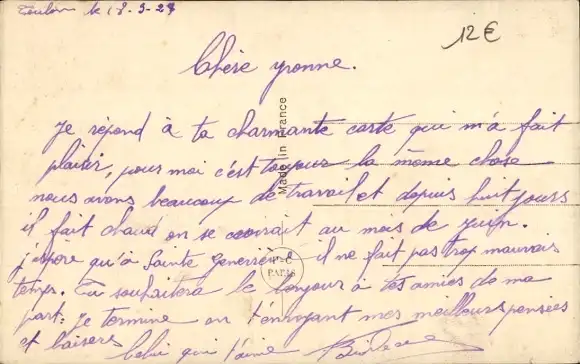 Toulon le 18-3-27
12€
Chère yvonne.
Je répond à ta charmante carte qui m'a fait
plaisir, pour moi c'est toujour la même chose
nous avons beaucoup de travail et depuis huit jours
il fait chaud on se croirait au mois de Juin.
j'espère qu'à Sainte Geneviève il ne fait pas trop mauvais
temps. Tu souhaitera le bonjour à tes amies de ma
part. Je termine en t'envoyant mes meilleurs pensées
et baisers Celui qui t'aime
Made in France
PARIS